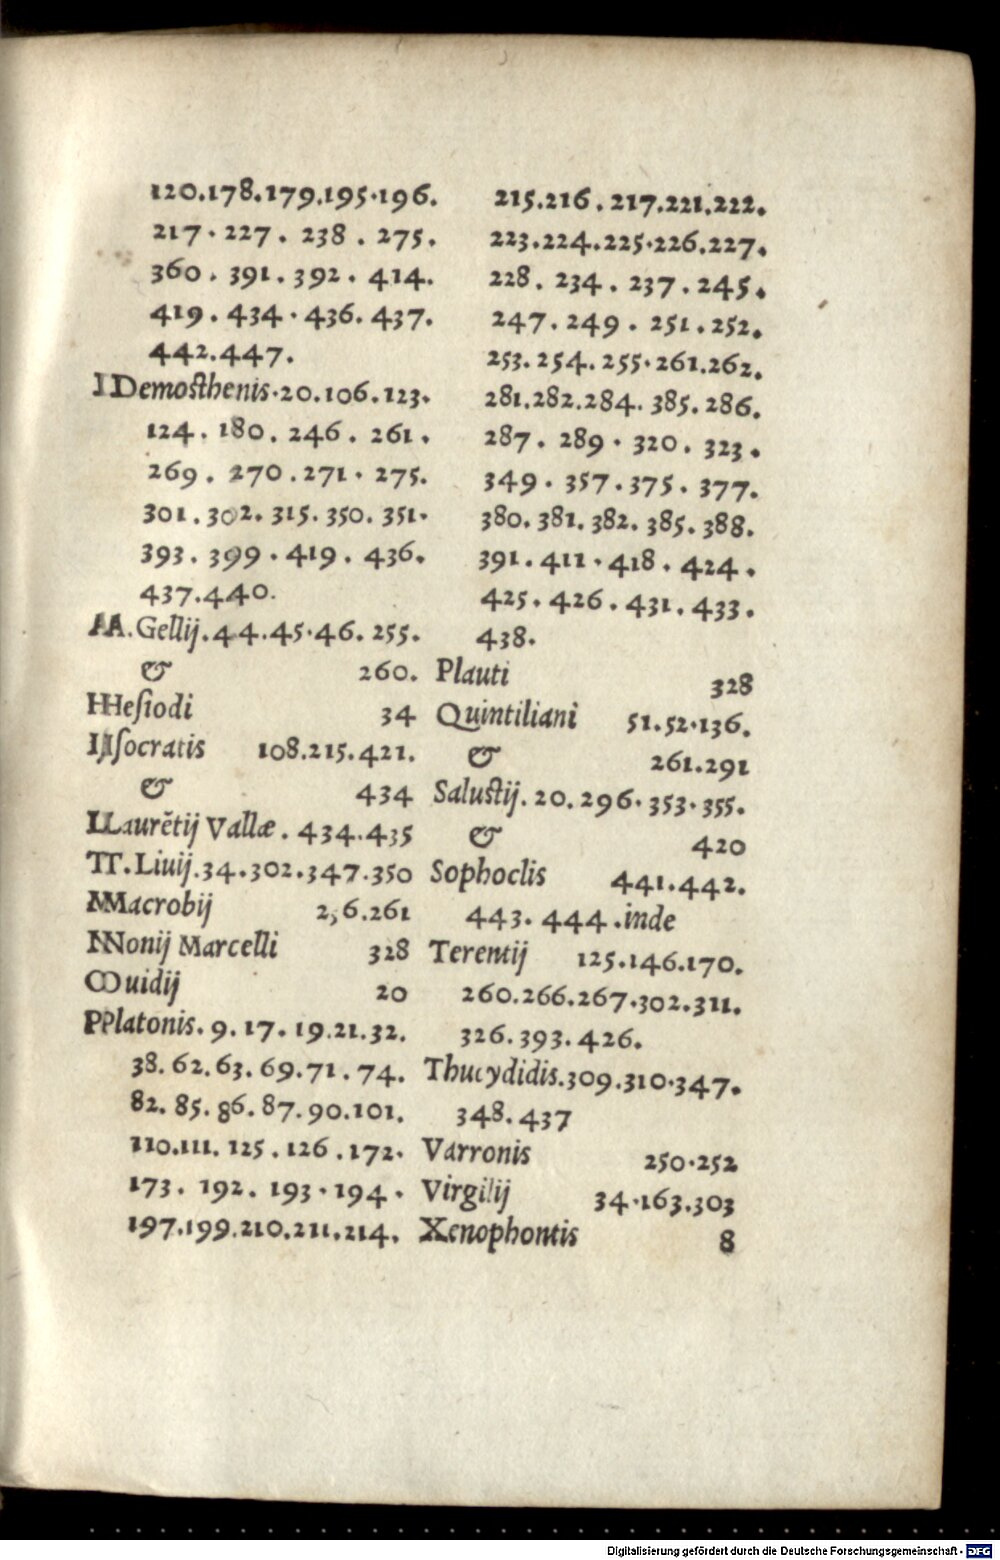 120.178.179.195.196.
217.227.238.275.
360.391.392.414.
419.434.436.437.
442.447.
Demosthenis.20.106.123.
124.180.246.261.
269.270.271.275.
301.302.315.350.351.
393.399.419.436.
437.440.
A.Gellij.44.45.46.255.
& 260.
Hesiodi 34
Isocratis 108.215.421.
& 434
Laurẽtij Vallæ. 434.435
T.Liuij.34.302.347.350
Macrobij 2;6.261
Nonij Marcelli 328
Ouidij 20
Platonis.9.17.19.21.32.
38.62.63.69.71.74.
82.85.86.87.90.101.
110.111.125.126.172.
173.192.193.194.
197.199.210.211.214.
215.216.217.221.222.
223.224.225.226.227.
228.234.237.245.
247.249.251.252.
253.254.255.261.262.
281.282.284.385.286.
287.289.320.323.
349.357.375.377.
380.381.382.385.388.
391.411.418.424.
425.426.431.433.
438.
Plauti 328
Quintiliani 51.52.136.
& 261.291
Salustij.20.296.353.355.
& 420
Sophoclis 441.442.
443.444.inde
Terentij 125.146.170.
260.266.267.302.311.
326.393.426.
Thucydidis.309.310.347.
348.437
Varronis 250.252
Virgilij 34.163.303
Xenophontis 8
Digitalisierung gefördert durch die Deutsche Forschungsgemeinschaft - DFG